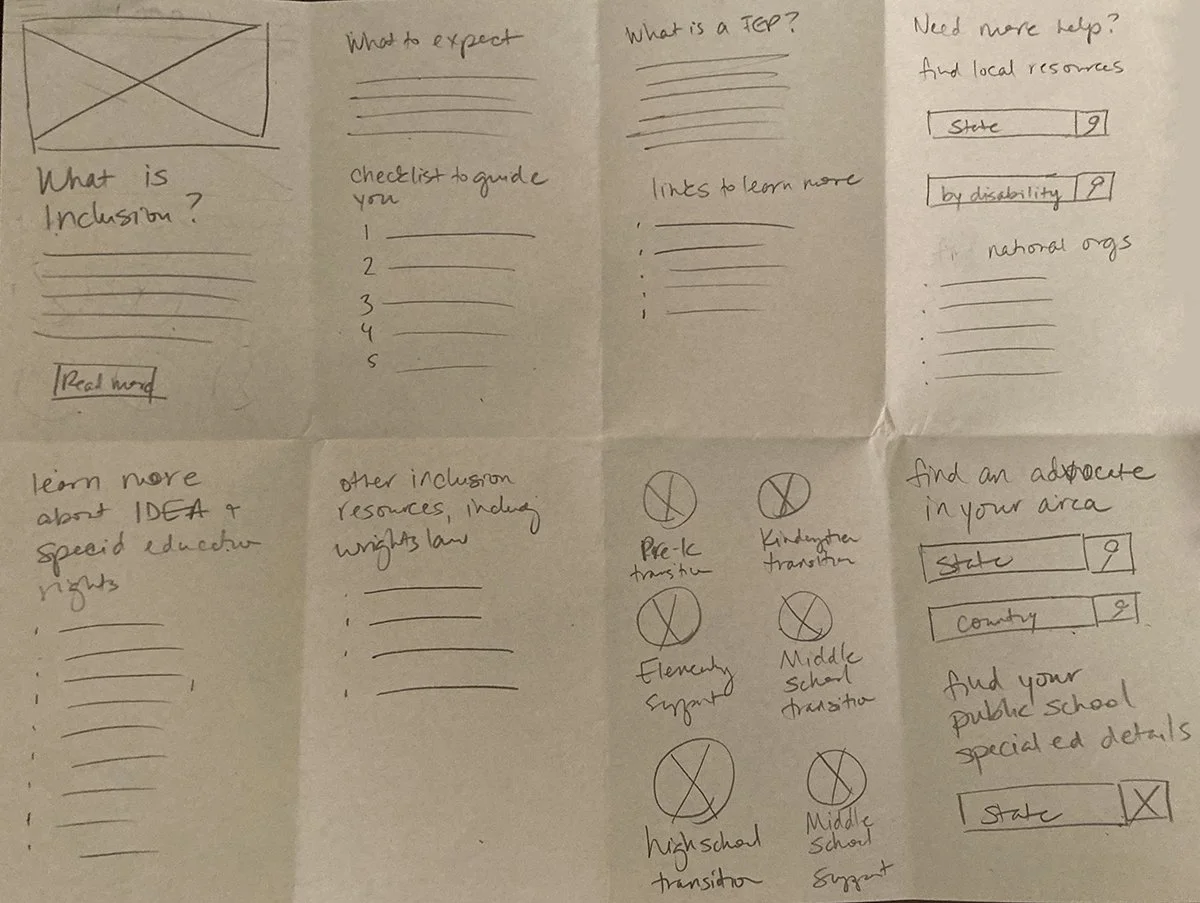 What is
Inclusion?
Read more
What to expect
checklist to guide
you
1
2
3
4
5
What is a IEP?
links to learn more
Need more help?
find local resources
State
by disability
national orgs
learn more
about IDEA +
special education
rights
other inclusion
resources, including
wrights law
Pre-K
transition
Kindergarten
transition
Elementary
Support
Middle
School
transition
high school
transition
Middle
School
Support
find an advocate
in your area
State
Country
find your
public school
special ed details
State